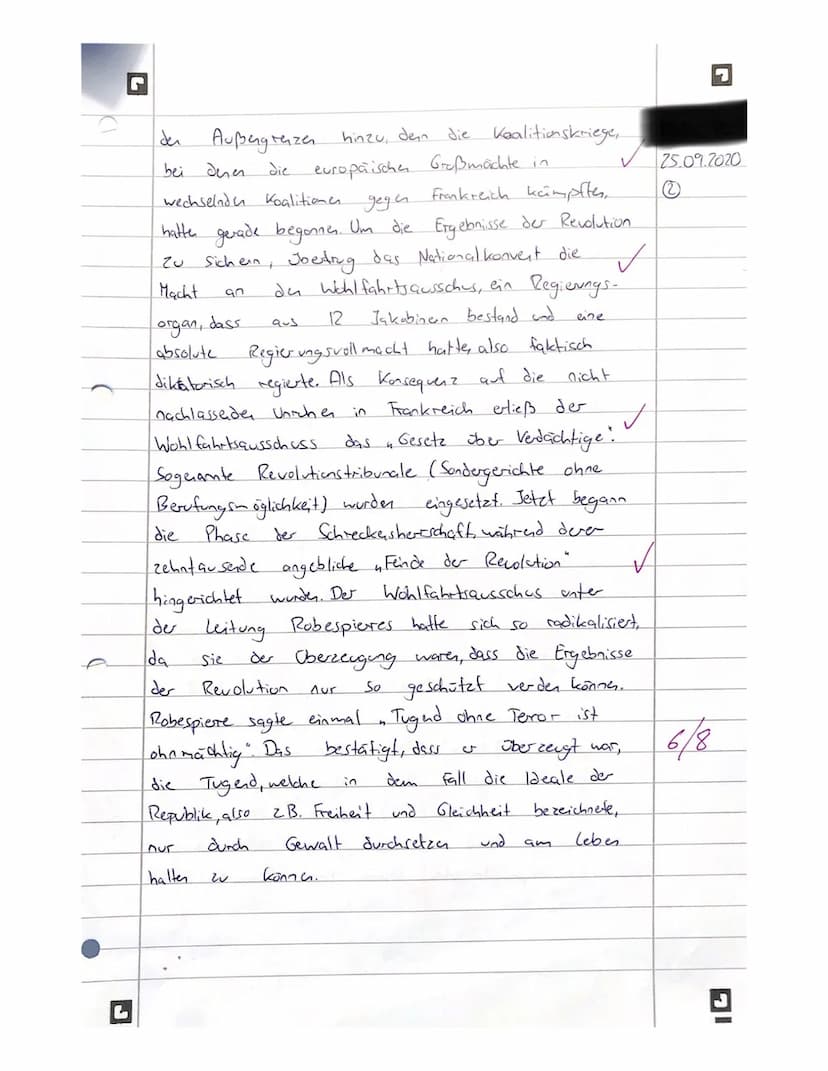 der Außengrenzen hinzu, denn die Koalitionskriege,
bei denen die europäischen Großmächte in
25.09.2020
wechselnden Koalitionen gegen Frankreich kämpften,
2
hatten gerade begonnen. Um die Ergebnisse der Revolution
zu sichern, übertrug das Nationalkonvent die
Macht an den Wohlfahrtsausschus, ein Regierungs-
organ, dass aus 12 Jakobinern bestand und eine
absolute Regierungsvollmacht hatte, also faktisch
diktatorisch regierte. Als Konsequenz auf die nicht
nachlasseden Unruhen in Frankreich erließ der
Wohlfahrtsausschuss das „Gesetz über Verdächtige".
Sogenannte Revolutionstribunale (Sondergerichte ohne
Berufungsmöglichkeit) wurden eingesetzt. Jetzt begann
die Phase der Schreckensherrschaft, während deren
zehntausende angebliche „Feinde der Revolution"
hingerichtet wurden. Der Wohlfahrtsausschus unter
der Leitung Robespieres hatte sich so radikalisiert,
da sie der Überzeugung waren, dass die Ergebnisse
der Revolution nur so geschützt werden können.
Robespiere sagte einmal „Tugend ohne Terror ist
ohnmächtig". Das bestätigt, dass er überzeugt war,
6/8
die Tugend, welche in dem Fall die Ideale der
Republik, also z.B. Freiheit und Gleichheit bezeichnete,
nur durch Gewalt durchsetzen und am Leben
halten zu können.